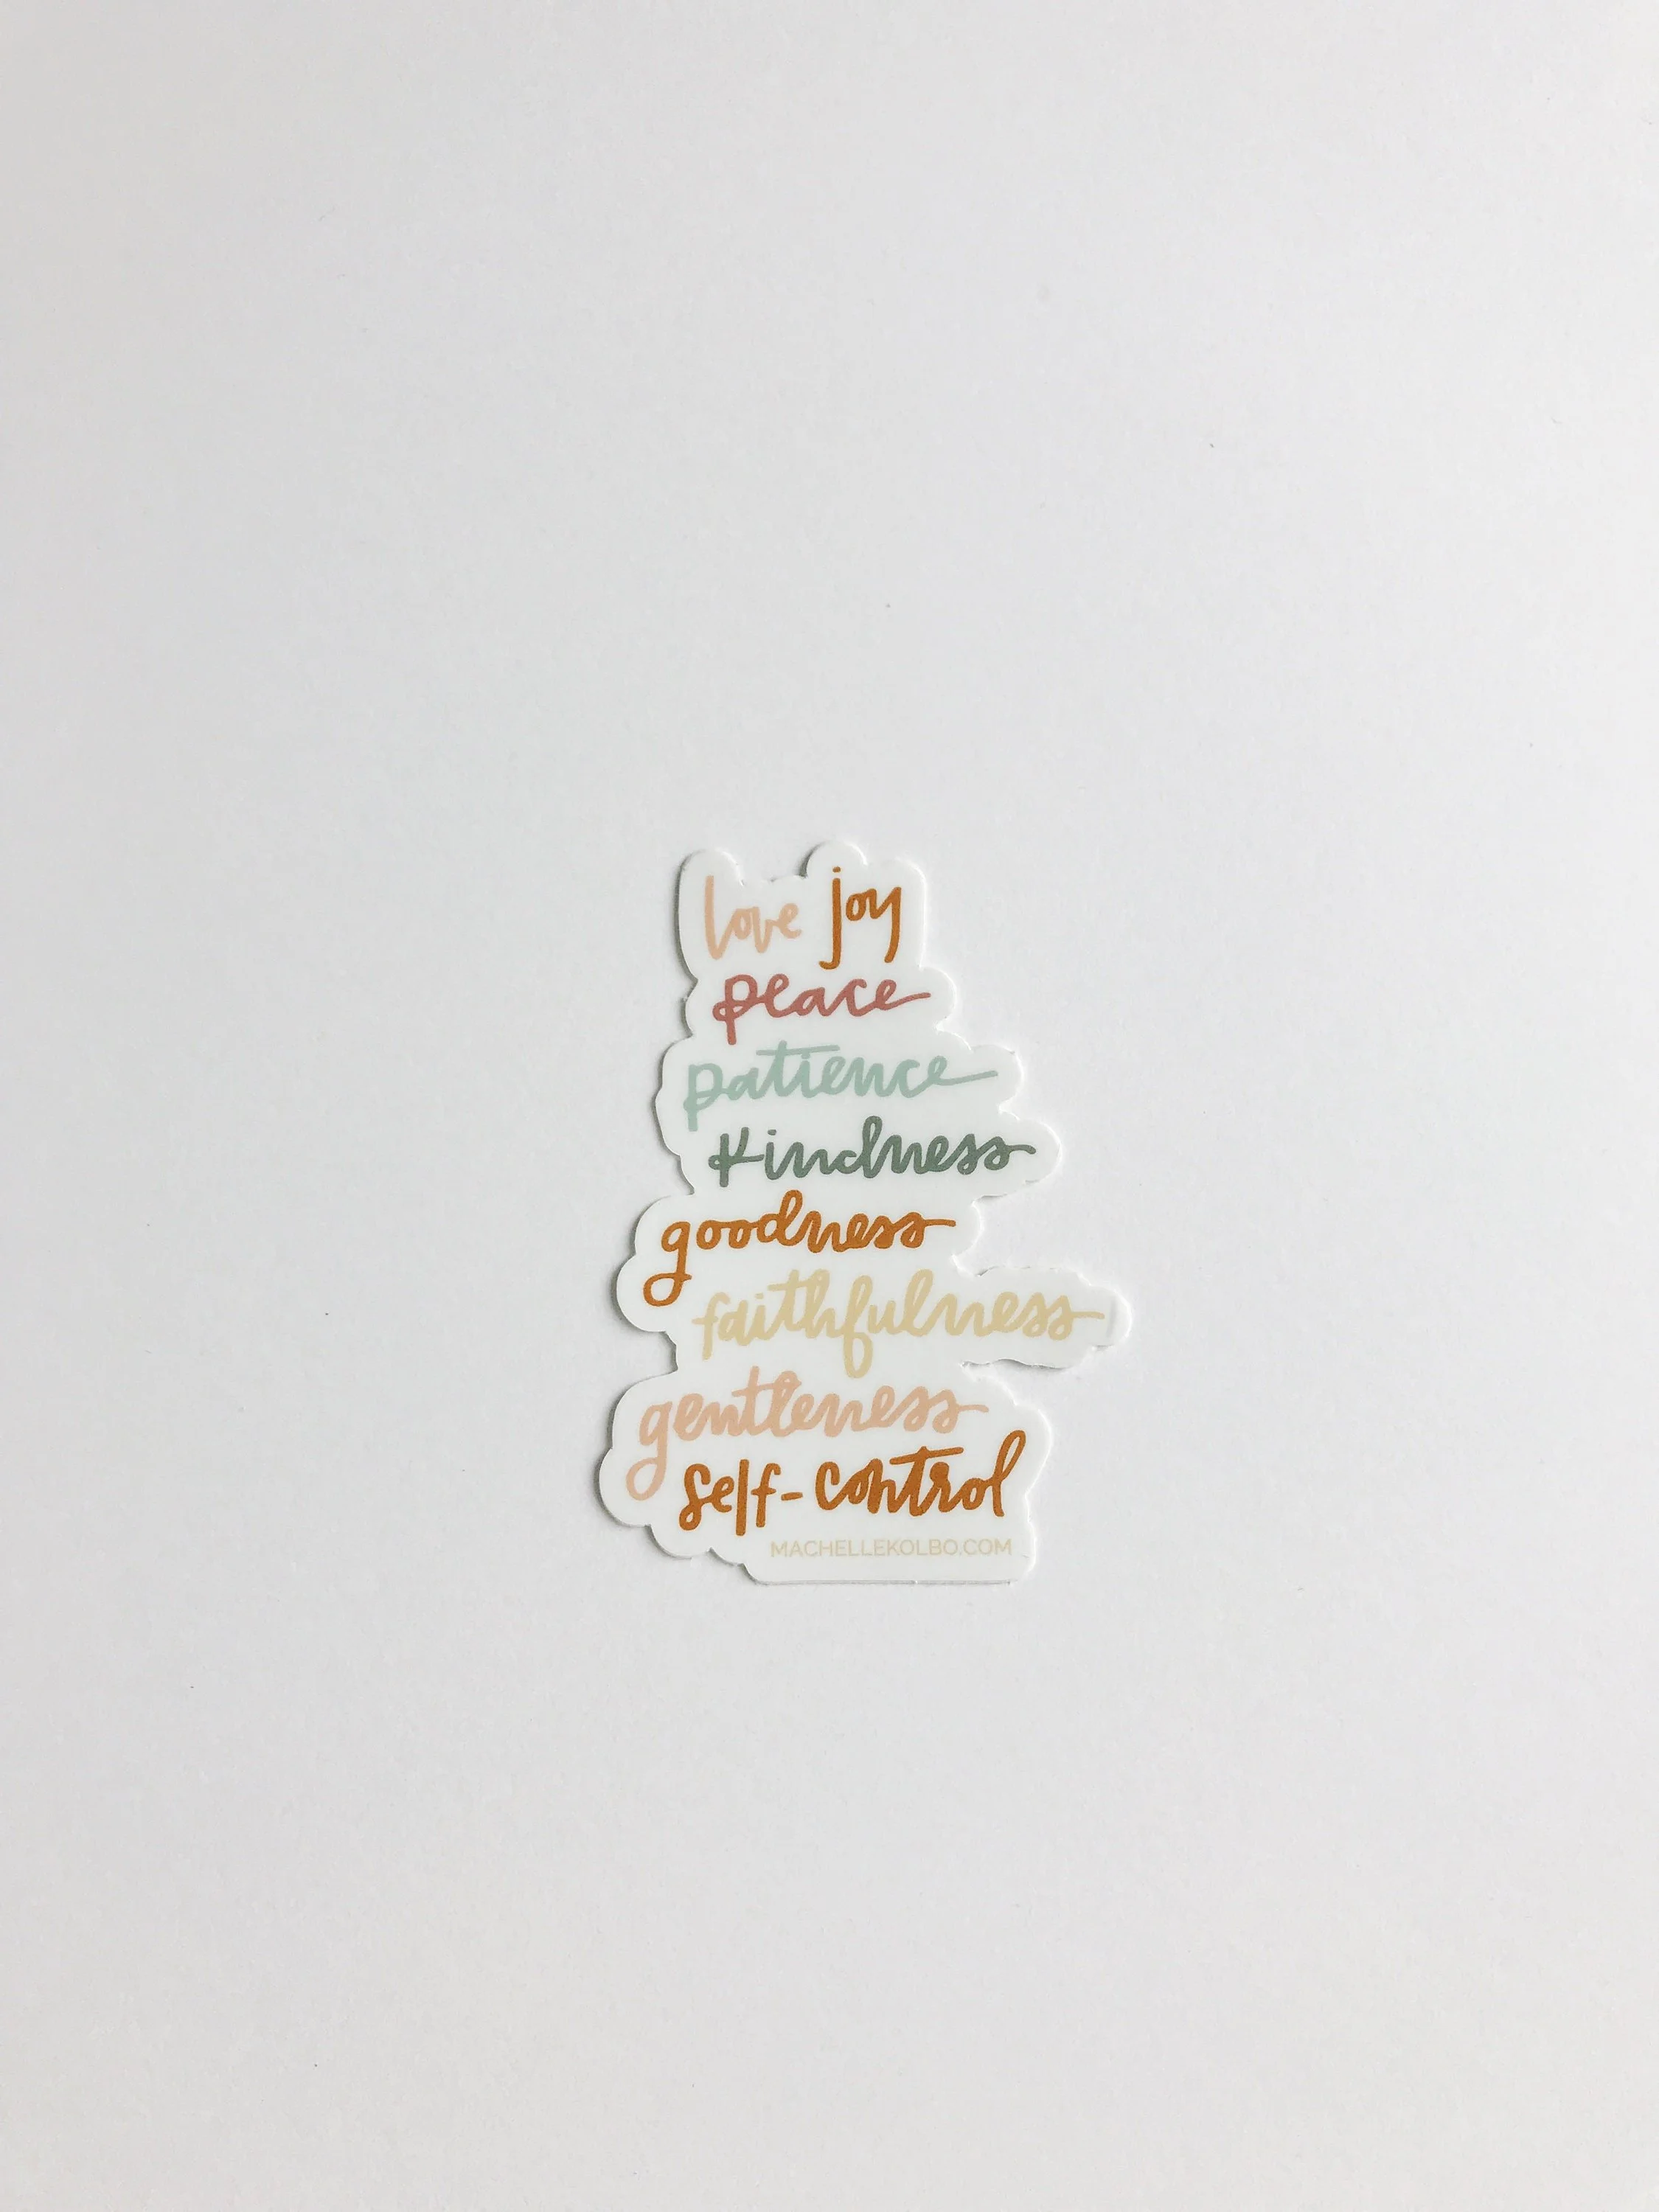 love joy
peace
patience
kindness
goodness
faithfulness
gentleness
self-control
MACHELLEKOLBO.COM